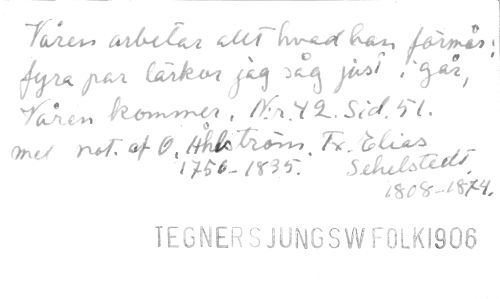 Våren arbetar allt hvad han förmår;
fyra par lärkor jag såg just i går,
Våren kommer. N:r 42. Sid. 51.
med not. af O. Åhlström. Tx. Elias
1756-1835. Sehelstedt.
1808-1874.
TEGNERSJUNGSWFOLK1906